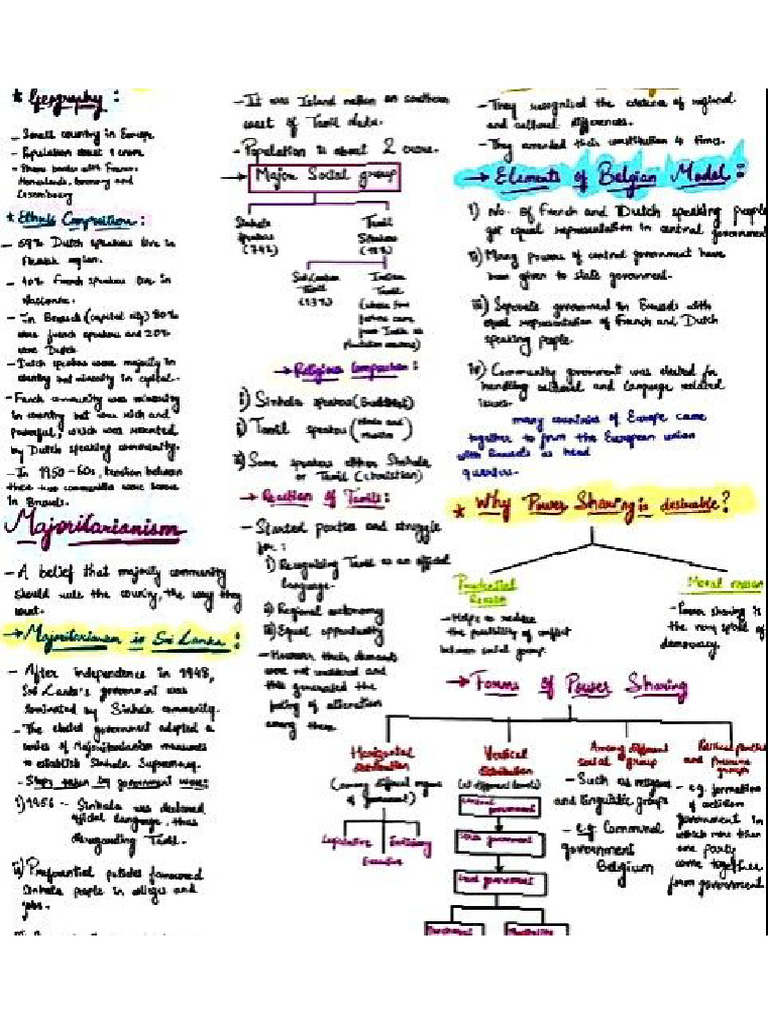 * Geography :
- Small country in Europe
- Population about 1 crore
- Share border with France,
Netherlands, Germany and
Luxembourg
* Ethnic Composition :
- 59% Dutch speakers live in
Flemish region.
- 40% French speakers live in
Wallonia.
- In Brussels (capital city) 80%
were french speakers and 20%
were Dutch
- Dutch speakers were majority in
country but minority in capital.
- French community was minority
in country but was rich and
powerful, which was resented
by Dutch speaking community.
- In 1950-60s, tension between
these two communities were
in Brussels.
Majoritarianism
- A belief that majority community
should rule the country, the way they
want.
→ Majoritarianism in Sri Lanka :
- After independence in 1948,
Sri Lanka's government was
dominated by Sinhala community.
- The elected government adopted a
series of Majoritarianism measures
to establish Sinhala Supremacy.
- Steps taken by government were:
i) 1956 - Sinhala was declared
official language, thus
disregarding Tamil.
ii) Preferential policies favoured
Sinhala people in colleges and
jobs.
- It was Island nation on southern
coast of Tamil Nadu.
- Population is about 2 crore.
→ Major Social group
Sinhala
speakers
(74%)
Tamil
Speakers
(18%)
Sri Lankan
Tamil
(13%)
Indian
Tamil
from India as
plantation workers)
→ Religious Composition :
i) Sinhala speakers (Buddhist)
ii) Tamil speakers (Hindu and
Muslim)
iii) Some speakers either Sinhala
or Tamil (Christian)
→ Reaction of Tamils :
- Started parties and struggle
for :
i) Recognising Tamil as an official
language.
ii) Regional autonomy
iii) Equal opportunity
- However their demands
were not considered and
this generated the
feeling of alienation
among them.
- They recognised the existence of regional
and cultural differences.
- They amended their constitution 4 times.
→ Elements of Belgian Model :
i) No. of French and Dutch speaking people
get equal representation in central government
ii) Many powers of central government have
been given to state government.
iii) Separate government in Brussels with
equal representation of French and Dutch
speaking people.
iv) Community government was elected for
handling cultural and language related
issues.
many countries of Europe came
together to form the European union
with Brussels as head
quarters.
* Why Power Sharing is desirable?
Prudential
Reason
- Helps to reduce
the possibility of conflict
between social group.
Moral reason
- Power sharing is
the very spirit of
democracy.
→ Forms of Power Sharing
Horizontal
distribution
(among different organs
of Government)
Legislative
Executive
Vertical
distribution
(at different levels)
Central government
State government
Local government
Among different
social group
- Such as religious
and linguistic groups
- e.g. Communal
government
Belgium
Political parties
and Pressure
groups
- e.g. formation
of coalition
government in
which more than
one party
come together
form government